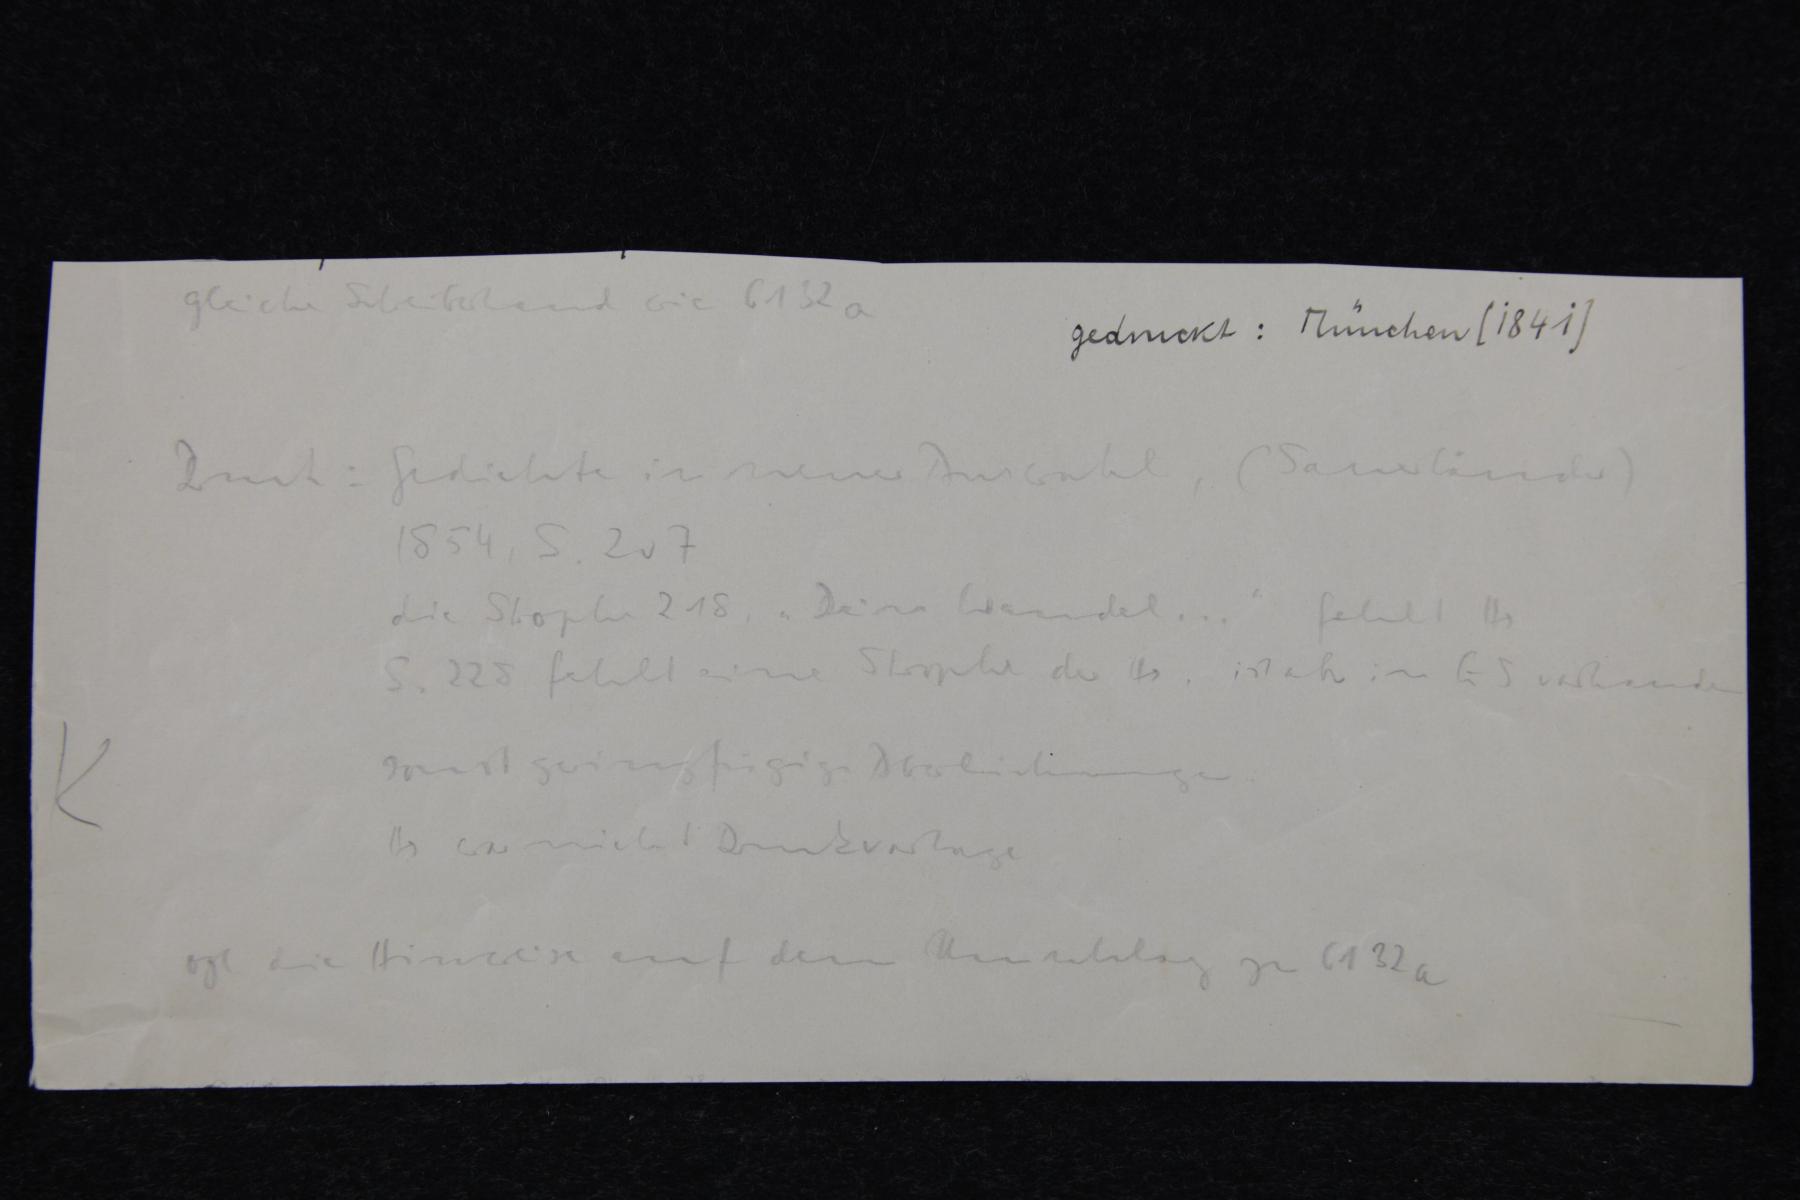 gleiche Schreiberhand wie 6132a
gedruckt: München [1841]
Druck: Gedichte in neuer Auswahl, (Sauerländer)
1854, S. 207
die Strophe 218, „Dein Wandel..." fehlt Hs
S. 228 fehlt eine Strophe der Hs, ist aber in GS vorhanden
K
sonst geringfügige Abweichungen
Hs war nicht Druckvorlage
vgl die Hinweise auf dem Umschlag zu 6132a